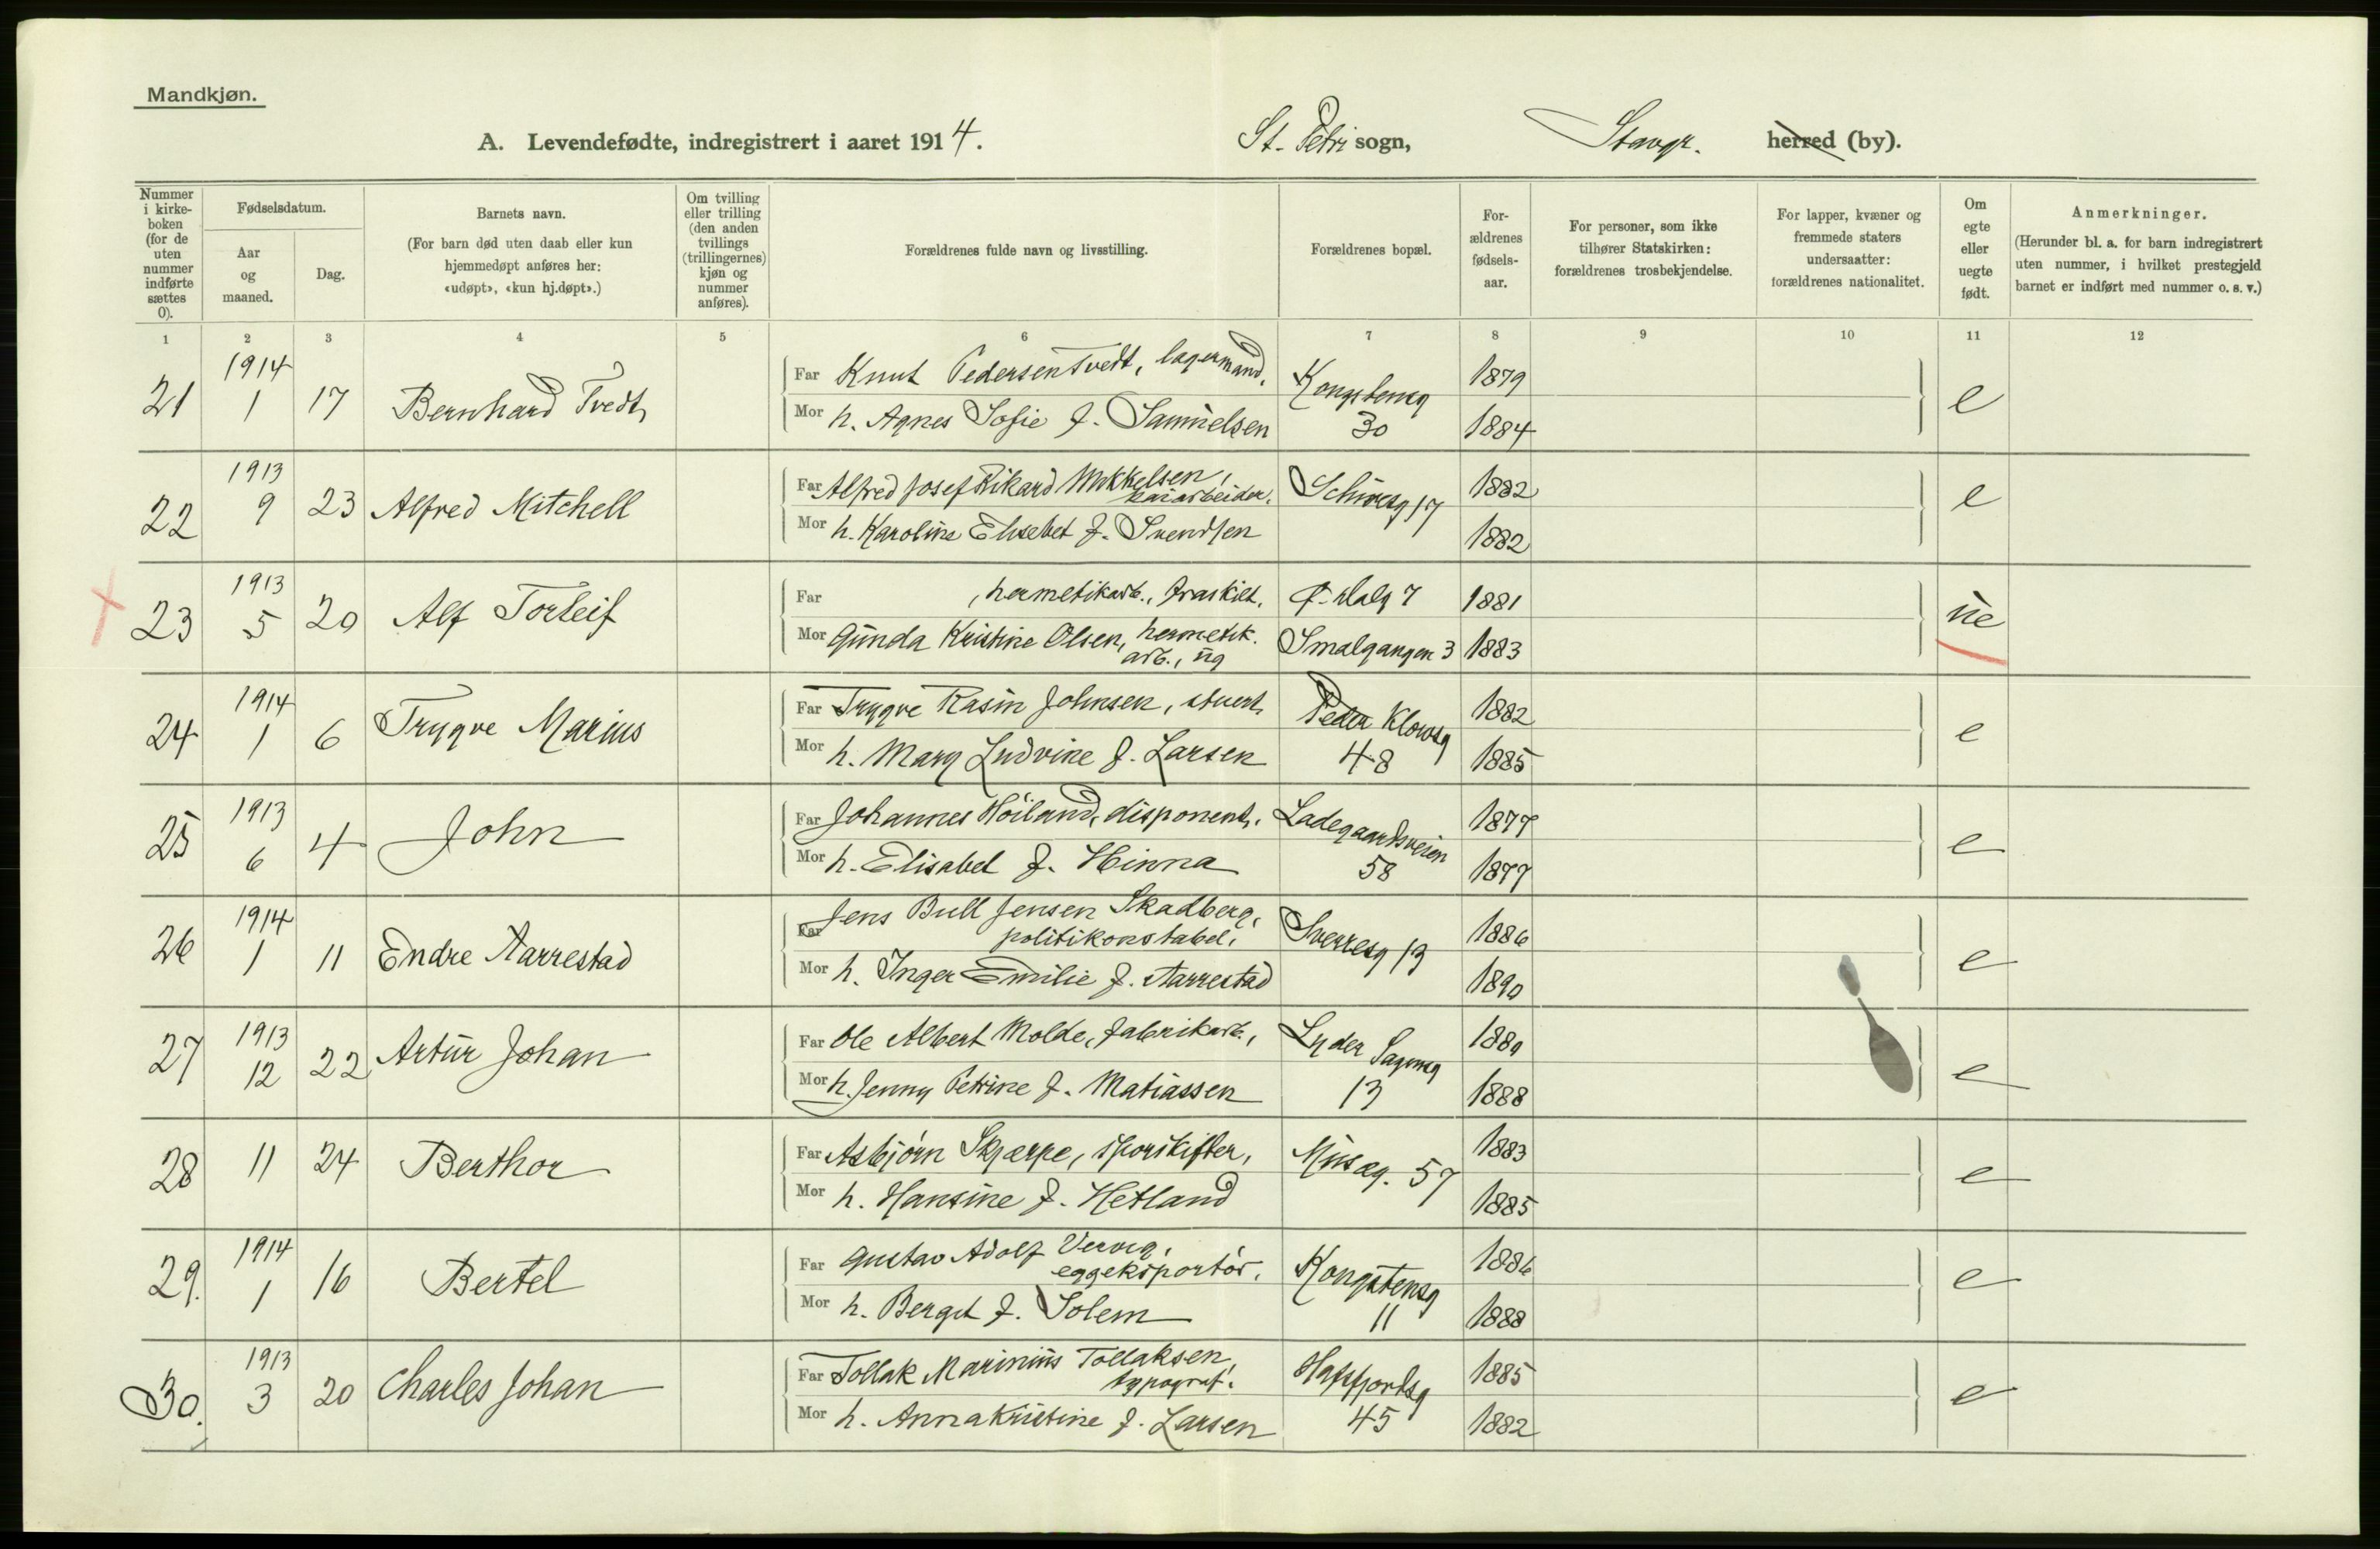 Mandkjøn.
A. Levendefødte, indregistrert i aaret 1914. St. Petri sogn, Stavgr. herred (by).
Nummer i kirkeboken (for de uten nummer indførte sættes 0).
Fødselsdatum.
Aar og maaned.
Dag.
Barnets navn.
(For barn død uten daab eller kun hjemmedøpt anføres her: «udøpt», «kun hj.døpt».)
Om tvilling eller trilling (den anden tvillings (trillingernes) kjøn og nummer anføres).
Forældrenes fulde navn og livsstilling.
Forældrenes bopæl.
Forældrenes fødselsaar.
For personer, som ikke tilhører Statskirken: forældrenes trosbekjendelse.
For lapper, kvæner og fremmede staters undersaatter: forældrenes nationalitet.
Om egte eller uegte født.
Anmerkninger.
(Herunder bl. a. for barn indregistrert uten nummer, i hvilket prestegjeld barnet er indført med nummer o. s. v.)
1 2 3 4 5 6 7 8 9 10 11 12
21 1914 1 17 Bernhard Tvedt
Far Knut Pedersen Tvedt, lagermand, Kongstensg 30 1879 e
Mor h. Agnes Sofie f. Samuelsen 1884
22 1913 9 23 Alfred Mitchell
Far Alfred Josef Rikard Mikkelsen, kaiarbeider. 17 1882 e
Mor h. Karoline Elisebet f. Svendsen 1882
23 1913 5 20 Alf Torleif
Far , hermetikarb., fraskilt, 7 1881 ue
Mor Gunda Kristine Olsen, hermetik. arb., ug Smalgangen 3 1883
24 1914 1 6 Trygve Marius
Far Trygve Rasin Johnsen, stuert, Peder Klowsg 48 1882 e
Mor h. Mary Ludvine f. Larsen 1885
25 1913 6 4 John
Far Johannes Höiland, disponent, Ladegaardsveien 58 1877 e
Mor h. Elisabet f. Hinna 1877
26 1914 1 11 Endre Aarrestad
Far Jens Bull Jensen Skadberg, politikonstabel, Sverresg 13 1886 e
Mor h. Inger Emilie f. Aarrestad 1890
27 1913 12 22 Artur Johan
Far Ole Albert Molde, fabrikarb., Lyder Sagensg 13 1889 e
Mor h. Jenny Petrine f. Matiassen 1888
28 11 24 Berthor
Far Asbjörn Skjærpe, sporskifter, Musæg. 57 1883 e
Mor h. Hansine f. Hetland 1885
29. 1914 1 16 Bertel
Far Gustav Adolf Vervig, eggeksportör, Kongstensg 11 1886 e
Mor h. Berget f. Solem 1888
30. 1913 3 20 Charles Johan
Far Tollak Marinius Tollaksen, typograf. Hafsfjordsg 45 1885 e
Mor h. Anna Kristine f. Larsen 1882